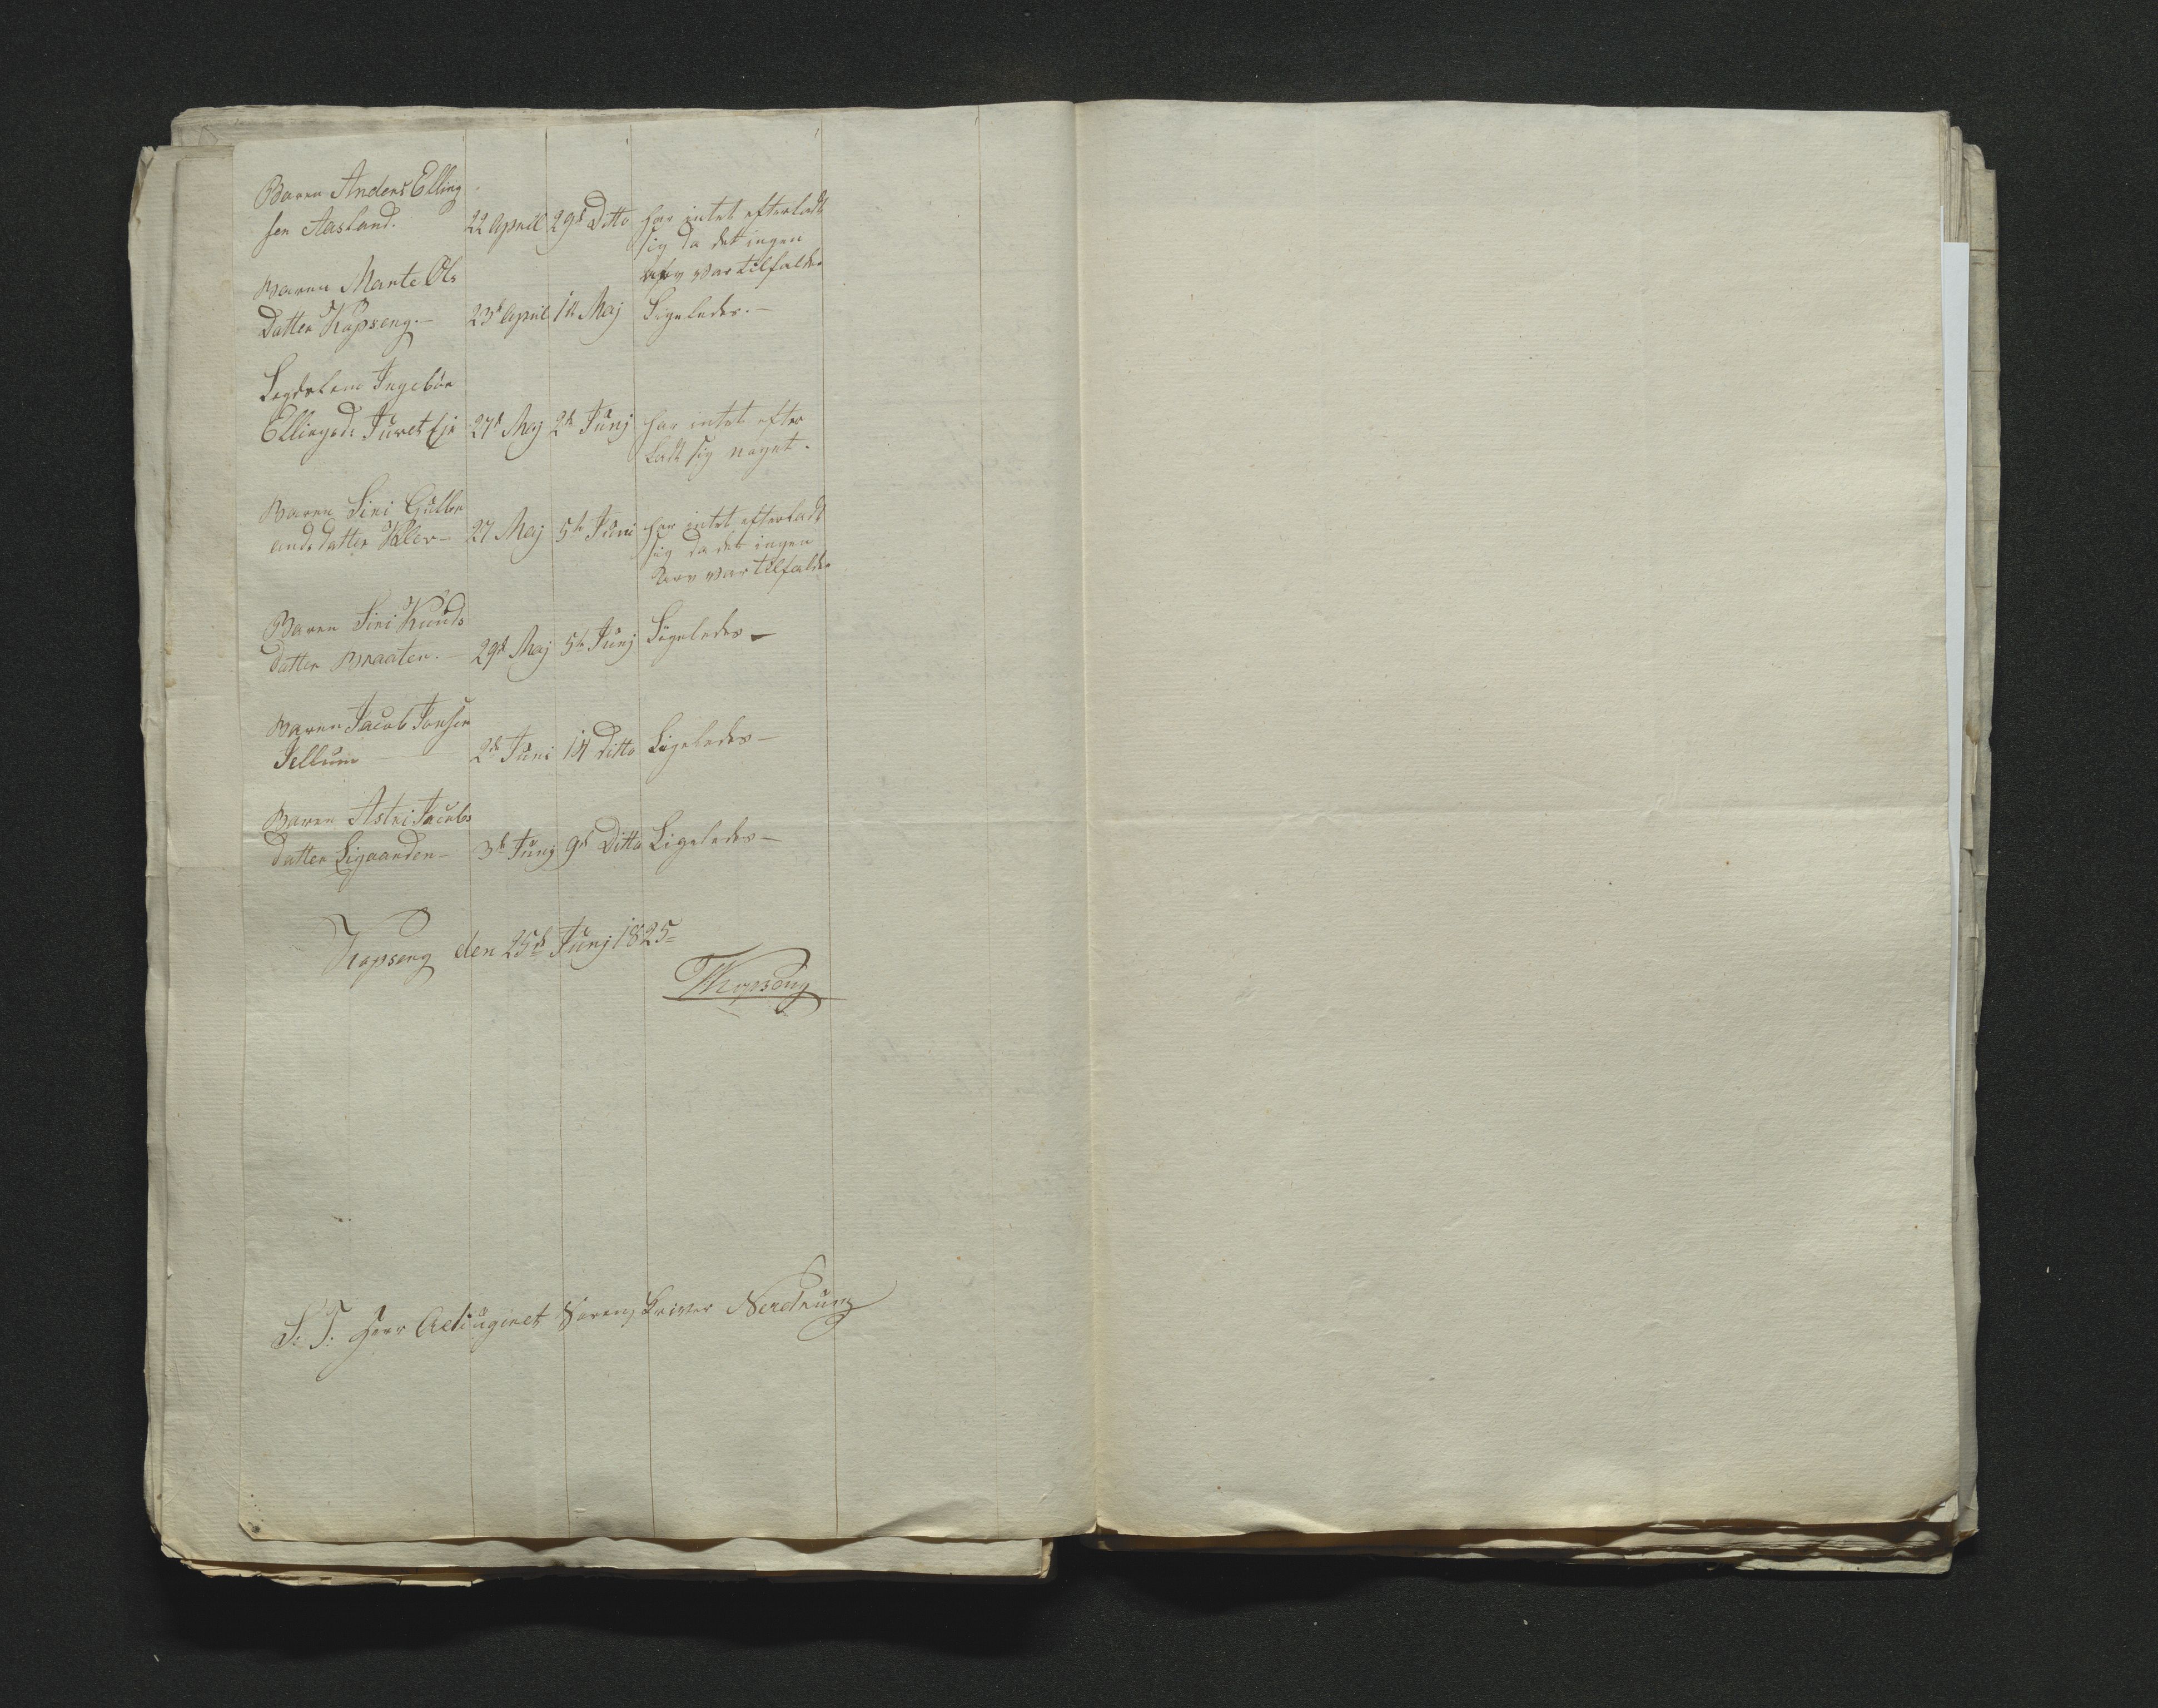 Barnet Anders Elling
sen Aasland. 22 April 29d Ditto har intet efterladt
sig da det ingen
arv var tilfalden
Barnet Marte Ols
datter Kopseng.— 23d April 1te Maj Ligeledes.—
Lægdslem Ingebor
Ellingsd: Juvet Eje 27d Maj 2de Junj har intet efter
ladt sig noget.
Barnet Siri Gulbr
ands datter Kler— 27 Maj 5te Juni har intet efterladt
sig da det ingen
arv var tilfalden
Barnet Siri Knuds
datter Braaten.— 29d Maj 5te Junj Ligeledes—
Barnet Jacob Jonsen
Jellum — 2de Juni 14 ditto Ligeledes—
Barnet Astri Jacobs
datter Ligaarden— 3de Junj 9d Ditto Ligeledes—
Kopseng den 25d Junj 1825
TKopseng
S. T. Herr Sorenskriver